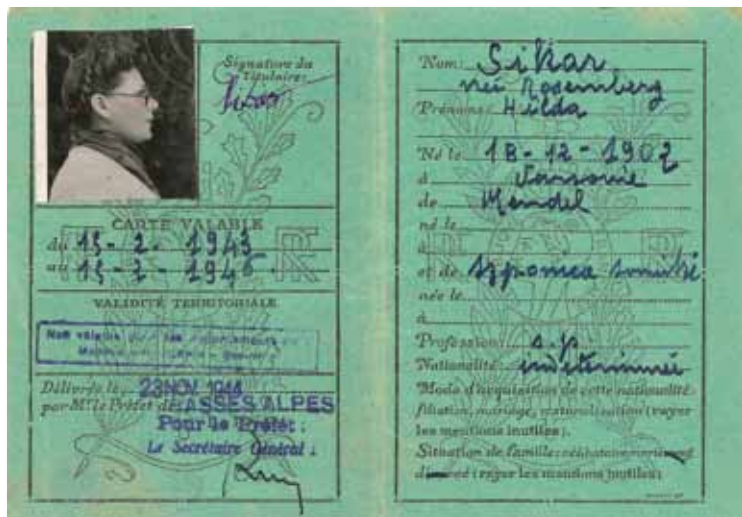 Signature du
Titulaire:
CARTE VALABLE
du 15-2-1943
au 15-2-1946
VALIDITÉ TERRITORIALE
Non valable
Délivrée le 23 NOV 1944
par Mr le Préfet des BASSES ALPES
Pour le Préfet:
Le Secrétaire Général:
Nom: Sikar
née Rosemberg
Prénoms: Hilda
Né le 18-12-1902
à Varsovie
de Mendel
né le
à
et de
née le
à
Profession: s.p
Nationalité: indéterminée
Mode d'acquisition de cette nationalité:
filiation, mariage, naturalisation (rayer
les mentions inutiles).
Situation de famille: célibataire marié veuf
divorcé (rayer les mentions inutiles)